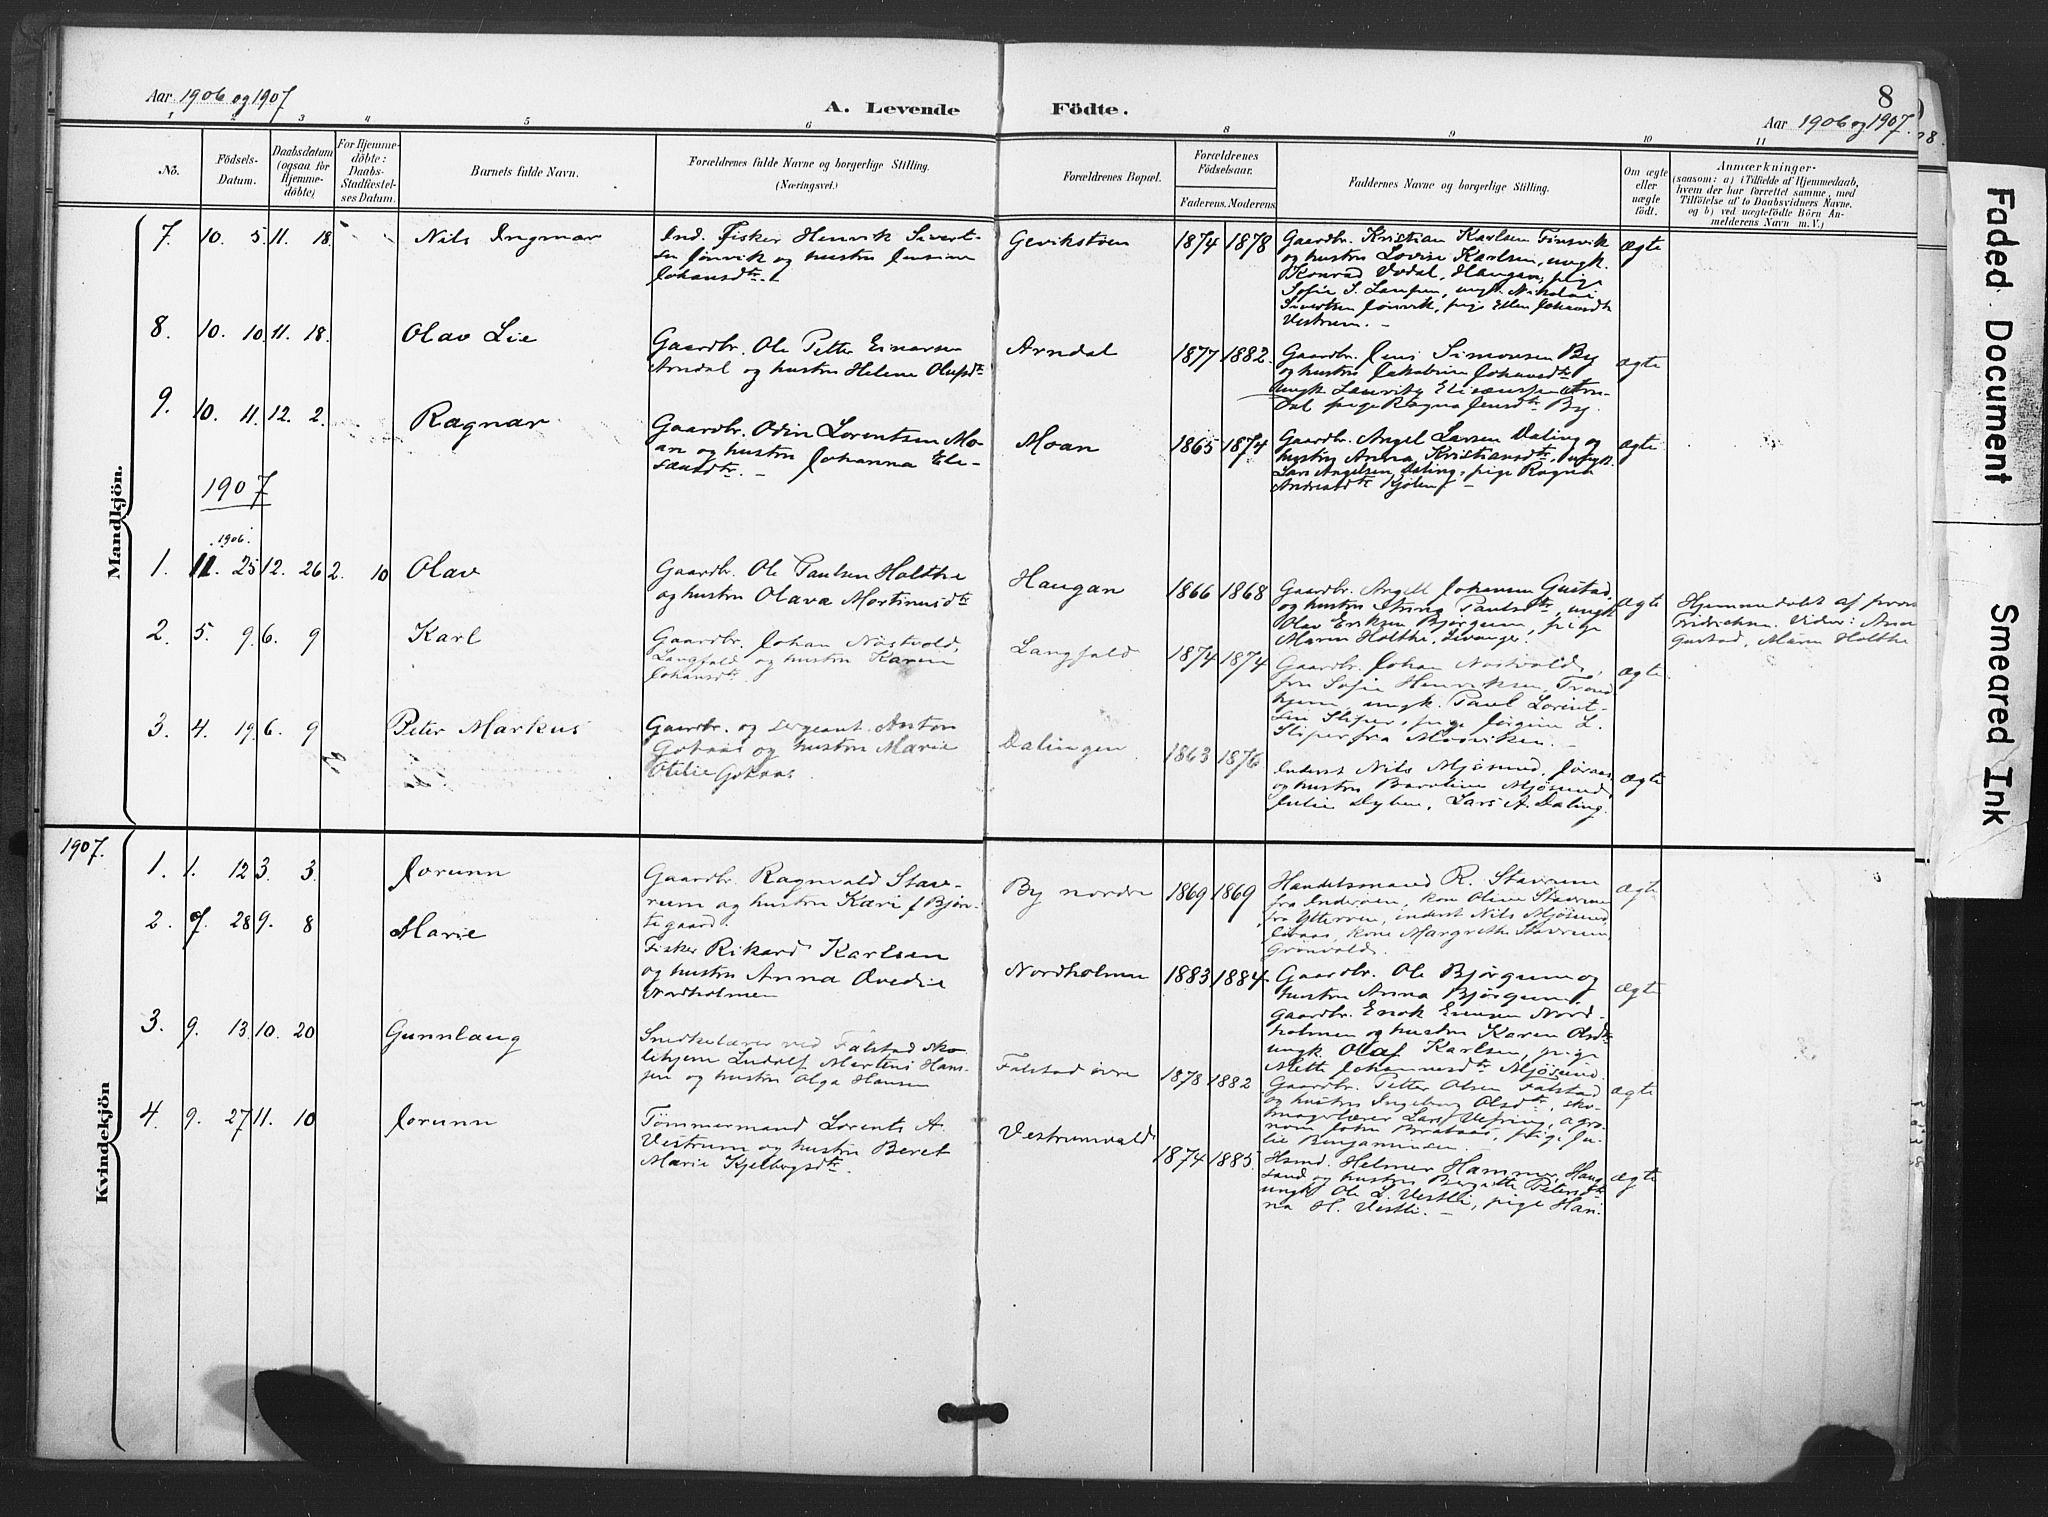 Aar 1906 og 1907
A. Levende Födte.
8
Aar 1906 og 1907.
1 2 3 4 5 6 8 9 10 11
No.
Födsels-Datum.
Daabsdatum (ogsaa for Hjemmedöbte)
For Hjemmedöbte: Daabs-Stadfæstelses Datum.
Barnets fulde Navn.
Forældrenes fulde Navne og borgerlige Stilling.
(Næringsvei.)
Forældrenes Bopæl.
Forældrenes Födselsaar.
Faderens. Moderens.
Faddernes Navne og borgerlige Stilling.
Om ægte eller uægte födt.
Anmærkninger
(saasom: a) i Tilfælde af Hjemmedaab,
hvem der har forrettet samme, med
Tilföielse af to Daabsvidners Navne.
og b) ved uægtefödte Börn Anmelderens Navn m. V.)
Mandkjön.
7. 10. 5. 11. 18. Nils Ingmar
Ind. Fisker Henrik Sivert-
sen Jönvik og hustru Jensine
Johansdtr.
Gevikstöen 1874 1878
Gaardbr. Kristian Karlsen Finsvik
og hustru Lovise Karlsen, ungk.
Konrad Vodal, Haugan, pige
Sofie S. Laupen, ungk. Nikolai
Sivertsen Jönvik, pige Ellen Johansdtr
Vestrum.
ægte
8. 10. 10. 11. 18. Olav Lie
Gaardbr. Ole Petter Einarsen
Arndal og hustru Helene Olufsdtr
Arndal 1877 1882.
Gaardbr. Jens Simonsen By
og hustru Jakobine Johansdtr
ungk. Lauritz Eliæussen Arn-
dal pige Ragna Jensdtr By.
ægte
9. 10. 11. 12. 2. Ragnar
Gaardbr. Odin Lorentsen Mo-
an og hustru Johanna Ele-
seusdtr.
Moan 1865 1874
Gaardbr. Angel Larsen Daling og
hustru Anna Kristiansdtr, ungk.
Lars Angelsen Daling, pige Ragna
Andreasdtr Kjölen
ægte
1907
1906.
1. 11. 25 12. 26 2. 10 Olav
Gaardbr. Ole Paulsen Holthe
og hustru Olava Martinusdtr
Haugan 1866 1868
Gaardbr. Angell Johansen Gustad,
og hustru Paulsdtr, ungk.
Olav Eriksen Bjørgum, pige
Maren Holthe, Levanger.
ægte
Hjemmedøbt af
Fredriksen. Vidner: Anna
Gustad, Maren Holthe
2. 5. 9. 6. 9 Karl
Gaardbr. Johan Nöstvold,
Langfald og hustru Karen
Johansdtr.
Langfald 1874 1874
Gaardbr. Johan Nöstvold,
fru Sofie Henriksen, Trond-
hjem, ungk. Paul Lorent-
sen Sliper, pige Jörgine L.
Sliper fra Mosviken.
ægte
3. 4. 19. 6. 9 Peter Markus
Gaardbr. og sergeant Anton
Gokaas og hustru Marie
Otelie Gokaas.
Dalingen 1863 1876
Inderst Nils Mjösund, Göraas
og hustru Baroline Mjösund,
Julie Dyben, Lars A. Daling.
ægte
1907.
Kvindekjön
1. 1. 12 3. 3. Jorunn
Gaardbr. Ragnvald Stav-
rum og hustru Kari f. Bjön-
tegaard.
By nordre 1869 1869
Handelsmand R. Stavrum
fra Inderøen, kone Oline Stavrum
fra Ytterøen, inderst Nils Mjösund
kone Margrethe Stavrum,
Grönvold.
ægte
2. 7. 28 9. 8 Marie
Fisker Rikard Karlsen
og hustru Anna Ovedie
Nordholmen
Nordholmen 1883 1884.
Gaardbr. Ole Bjørgum og
hustru Anna Bjørgum,
Gaardbr. Enok Evensen Nord-
holmen og hustru Karen Olsdtr
ungk. Olaf Karlsen, pige
Mette Johannesdtr Mjösund.
ægte
3. 9. 13. 10. 20 Gunnlaug
Snedkelærer ved Falstad sko-
lehjem Ludolf Martens Han-
sen og hustru Olga Hansen
Falstad övre 1878 1882
Gaardbr. Petter Olsen Falstad
og hustru Ingeborg Olsdtr, sko-
magerlærer Lars Vefring, agro-
nom John Braaas, pige Ju-
lie Benjaminsen.
ægte
4. 9. 27 11. 10 Jorunn
Tömmermand Lorents A.
Vestrum og hustru Beret
Marie Kjelbergsdtr.
Vestrumvald 1874 1885.
Hsmd. Helmer Hammer, Haug-
land og hustru Bergitte Petersdtr
ungk. Ole L. Vestli, pige Han-
na H. Vestli.
ægte
Faded Document
Smeared Ink